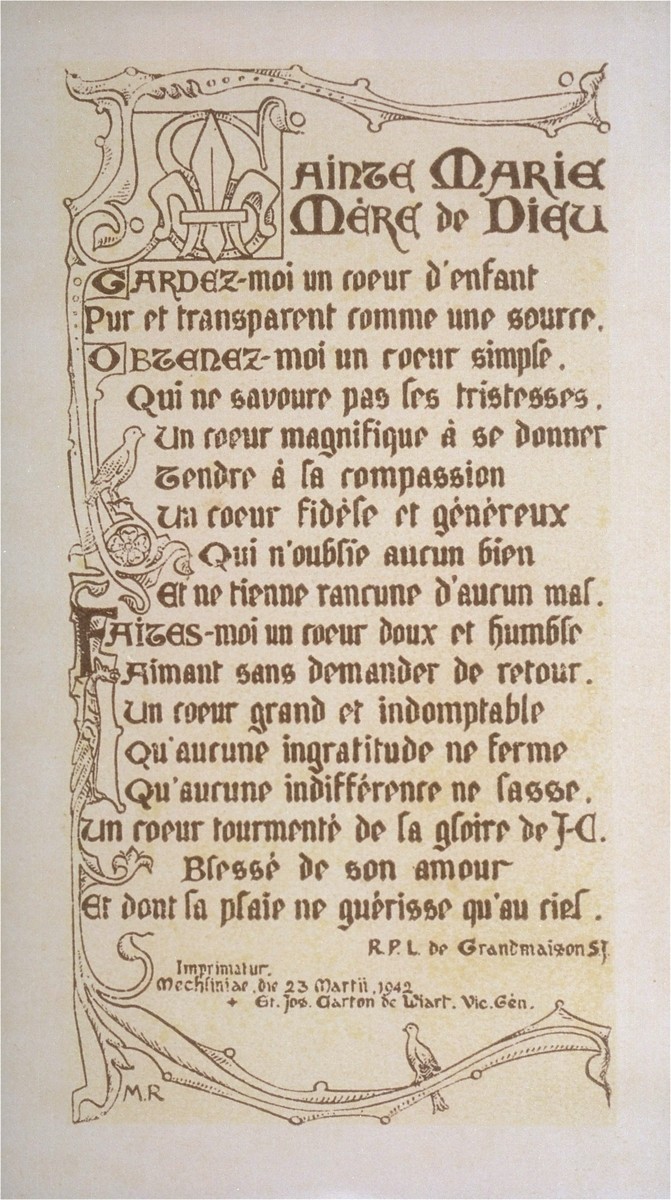 Sainte Marie
Mère de Dieu
Gardez-moi un coeur d'enfant
Pur et transparent comme une source.
Obtenez-moi un coeur simple.
Qui ne savoure pas les tristesses.
Un coeur magnifique à se donner
Tendre à la compassion
Un coeur fidèle et généreux
Qui n'oublie aucun bien
Et ne tienne rancune d'aucun mal.
Faites-moi un coeur doux et humble
Aimant sans demander de retour.
Un coeur grand et indomptable
Qu'aucune ingratitude ne ferme
Qu'aucune indifférence ne lasse.
Un coeur tourmenté de la gloire de J-C.
Blessé de son amour
Et dont la plaie ne guérisse qu'au ciel.
R.P.L. de Grandmaison S.J.
Imprimatur.
Mechliniae, die 23 Martii, 1942
+ Et. Jos. Carton de Wiart. Vic. Gén.
M.R